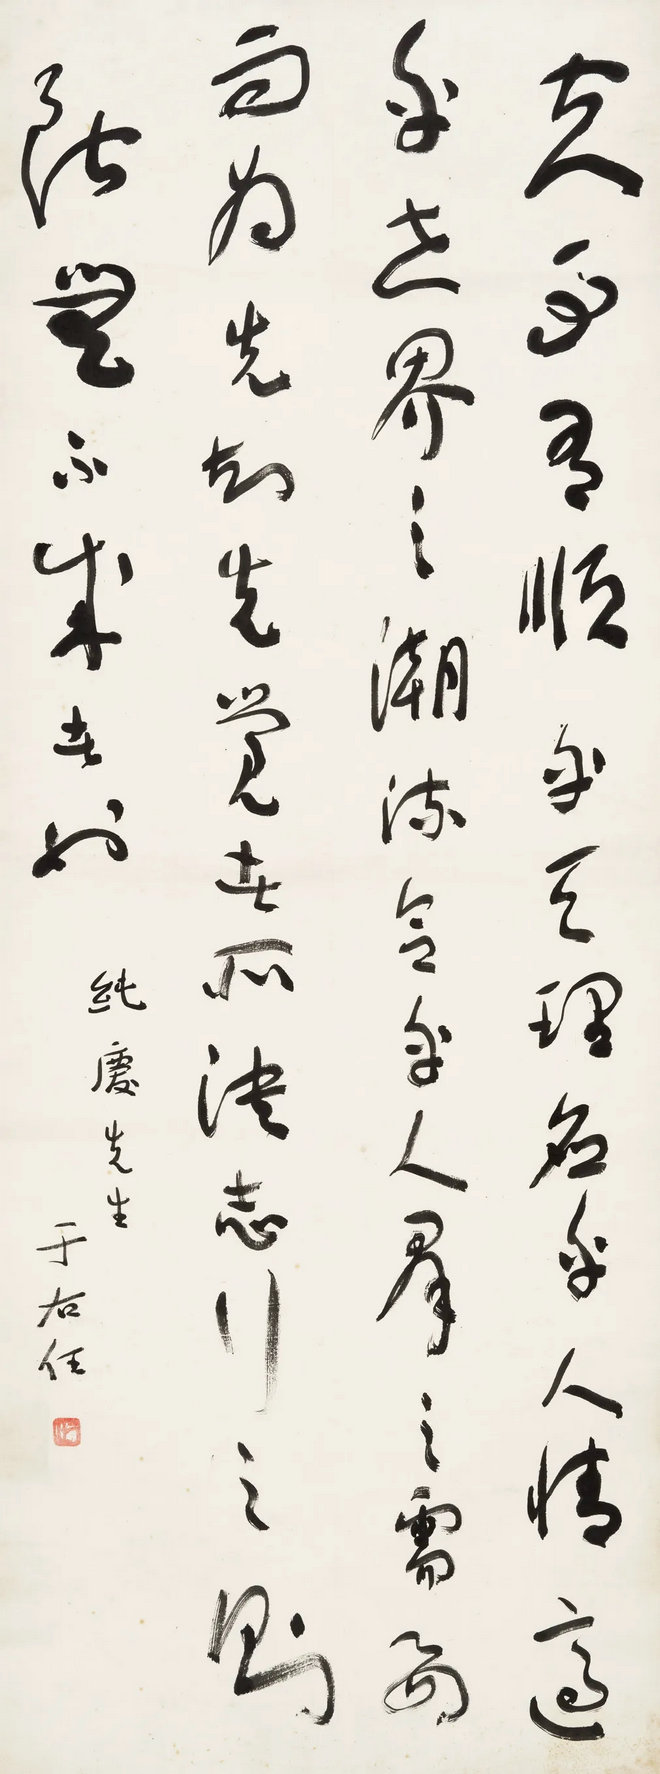 夫事有順乎天理應乎人情適
乎世界之潮流合乎人群之需要
而為先知先覺者所決志行之則
斷無不成者也
純慶先生
于右任